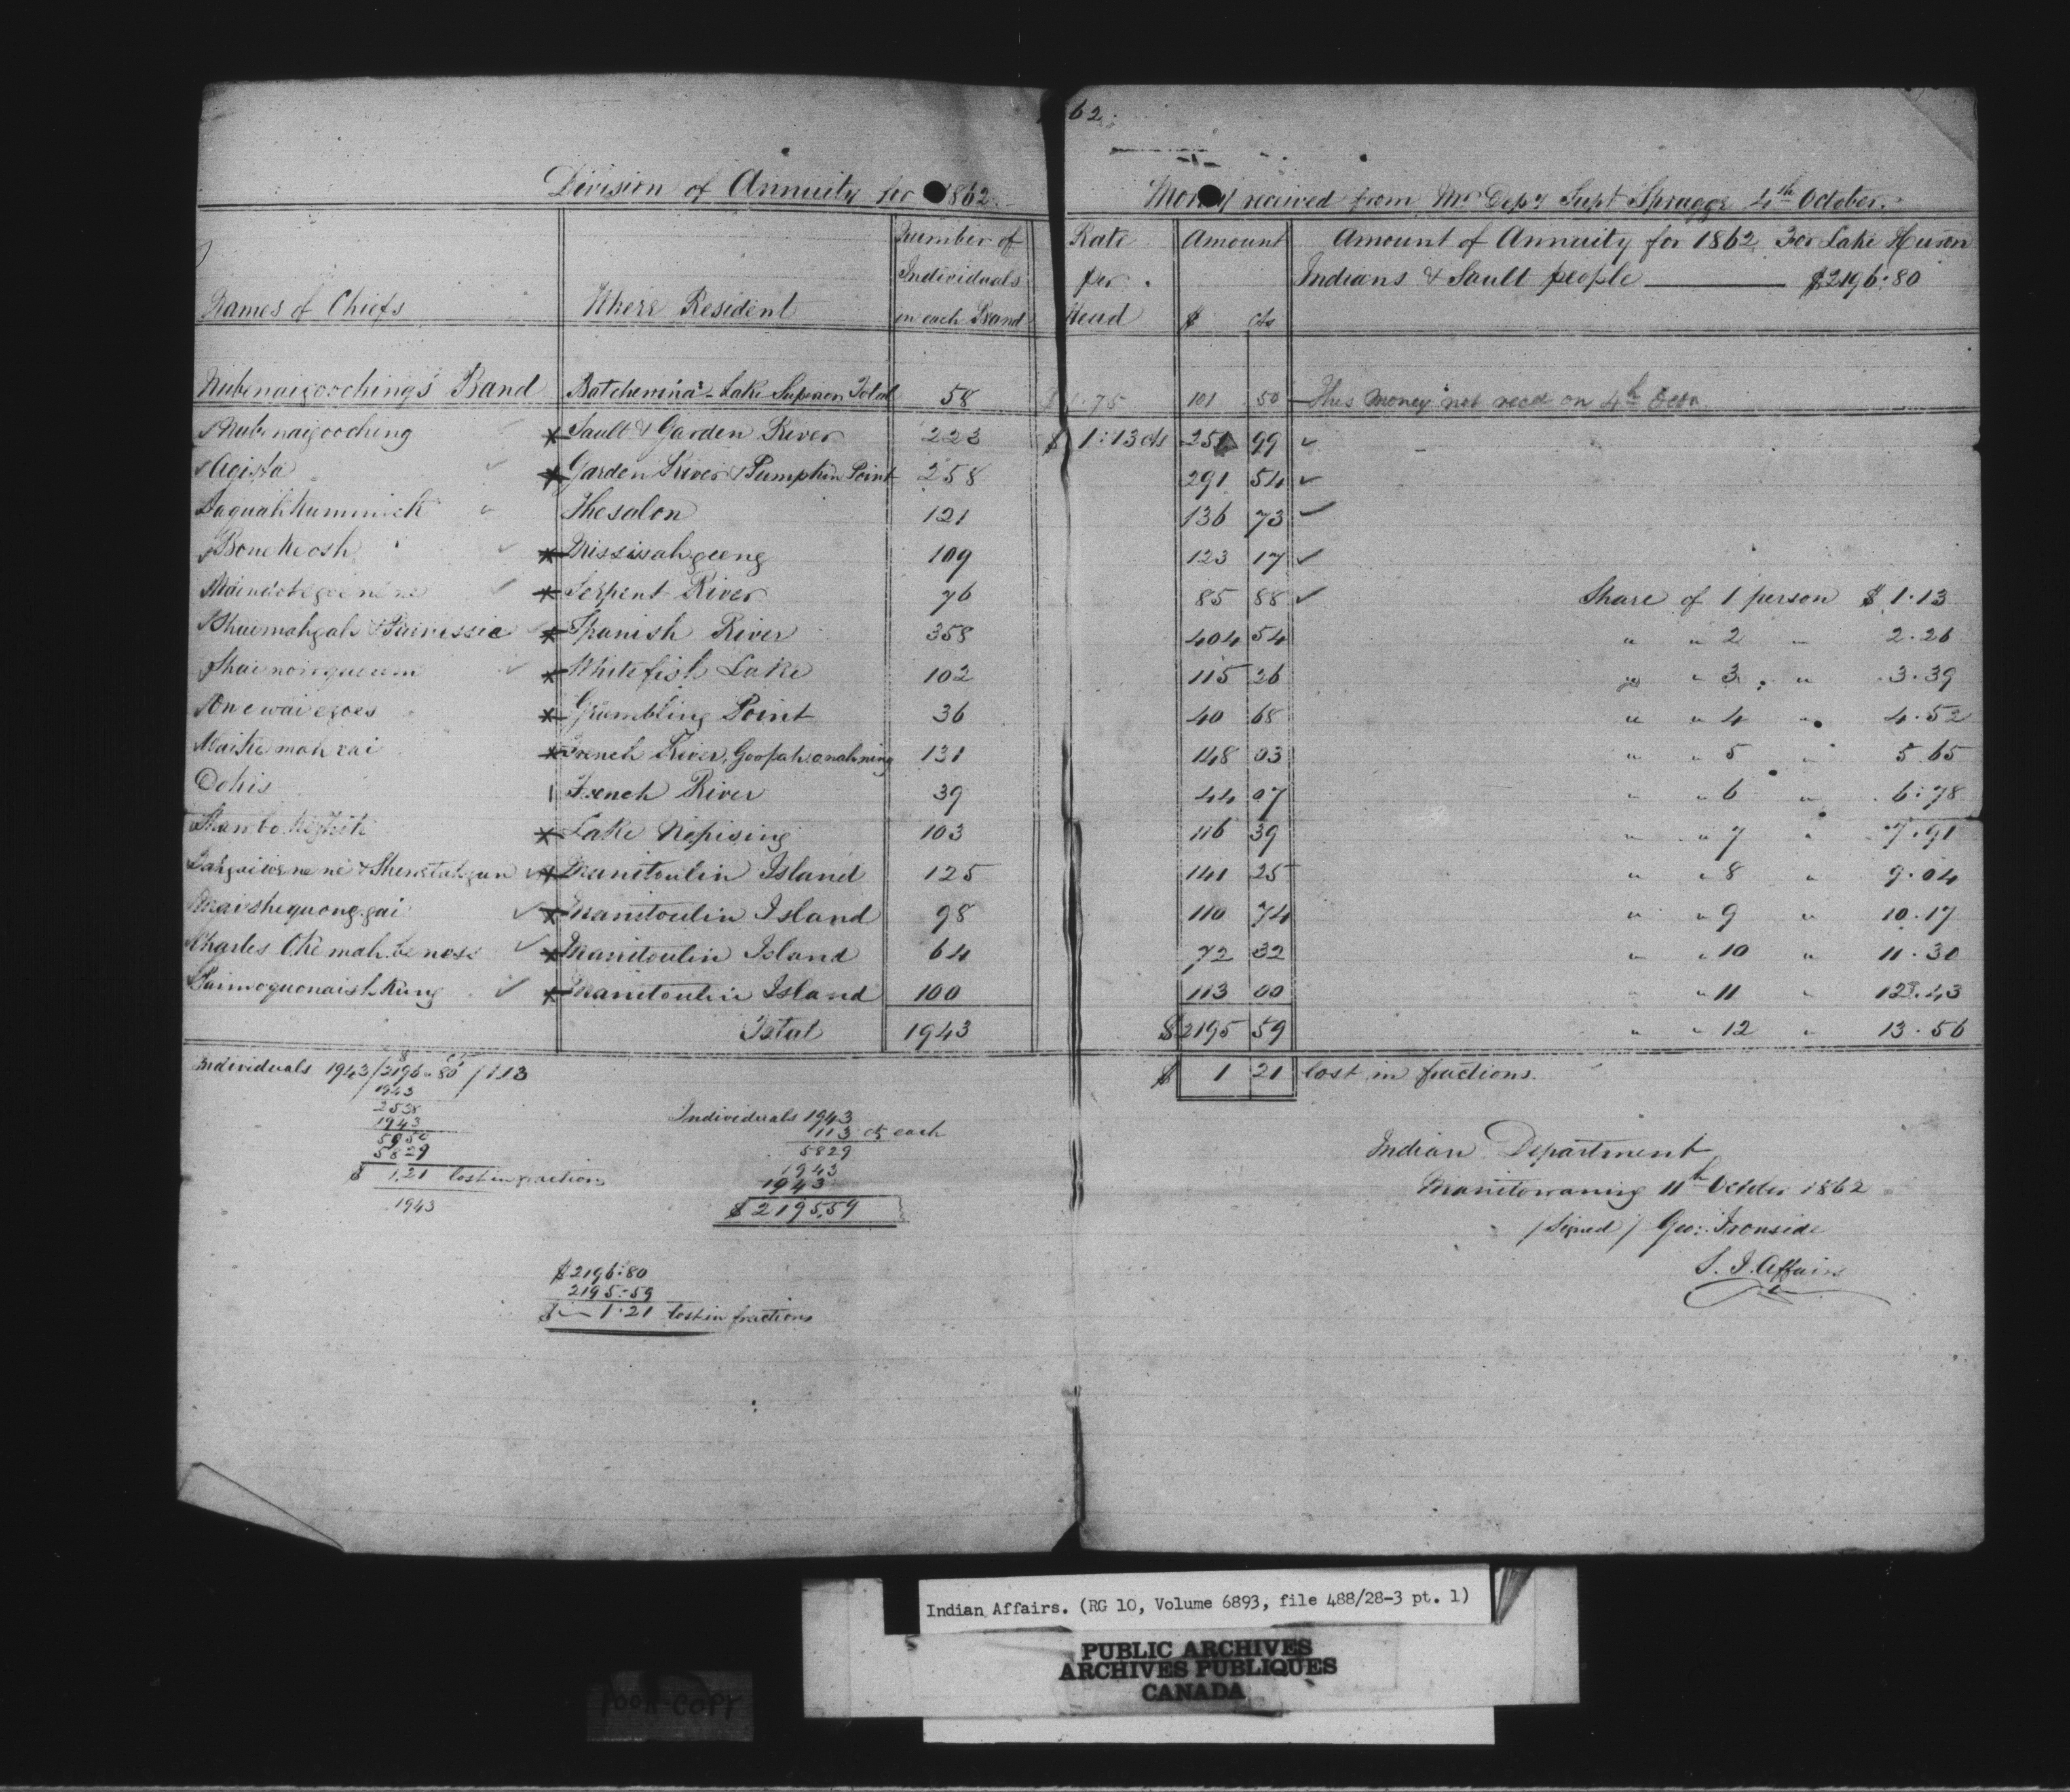 62.
Division of Annuity for 1862. Money received from Mr Depy Supt Spragge 4th October.
Names of Chiefs Where Resident Number of Individuals in each Band Rate per Head Amount $ cts Amount of Annuity for 1862 For Lake Huron
Indians & Sault people $2196:80
Nubenaigoochings Band Batchewina - Lake Superior Total 58 $1.75 101 50 This money not recd on 4th Octr
Nubenaigooching Sault & Garden River 223 $1:13 cts 251 99
Agista Garden River & Pumpkin Point 258 291 54
Thesalon 121 136 73
Bonekeosh Mississahgeeng 109 123 17
Serpent River 76 85 88 Share of 1 person $1.13
Spanish River 358 404 54 " " 2 " 2.26
Whitefish Lake 102 115 26 " 3 " 3.39
Grumbling Point 36 40 68 " " 4 " 4.52
French River, 131 148 03 " " 5 " 5.65
Dokis French River 39 44 07 " " 6 " 6.78
Lake Nepising 103 116 39 " " 7 " 7.91
Manitoulin Island 125 141 25 " " 8 " 9.04
Maishequong.gai Manitoulin Island 98 110 74 " " 9 " 10.17
Charles Manitoulin Island 64 72 32 " " 10 " 11.30
Paimoquonaishkung Manitoulin Island 100 113 00 " " 11 " 12.43
Total 1943 $2195 59 " " 12 " 13.56
$ 1 21 lost in fractions.
Individuals 1943/2196.80/1.13
1943
2538
1943
5950
5829
$ 1.21 lost in fractions
1943
Individuals 1943
113 cts each
5829
1943
1943
$2195.59
$2196:80
2195:59
$ 1.21 lost in fractions
Indian Department
Manitowaning 11th October 1862
/Signed/ Geo: Ironside
S. I. Affairs
Indian Affairs. (RG 10, Volume 6893, file 488/28-3 pt. 1)
PUBLIC ARCHIVES
ARCHIVES PUBLIQUES
CANADA
POOR COPY